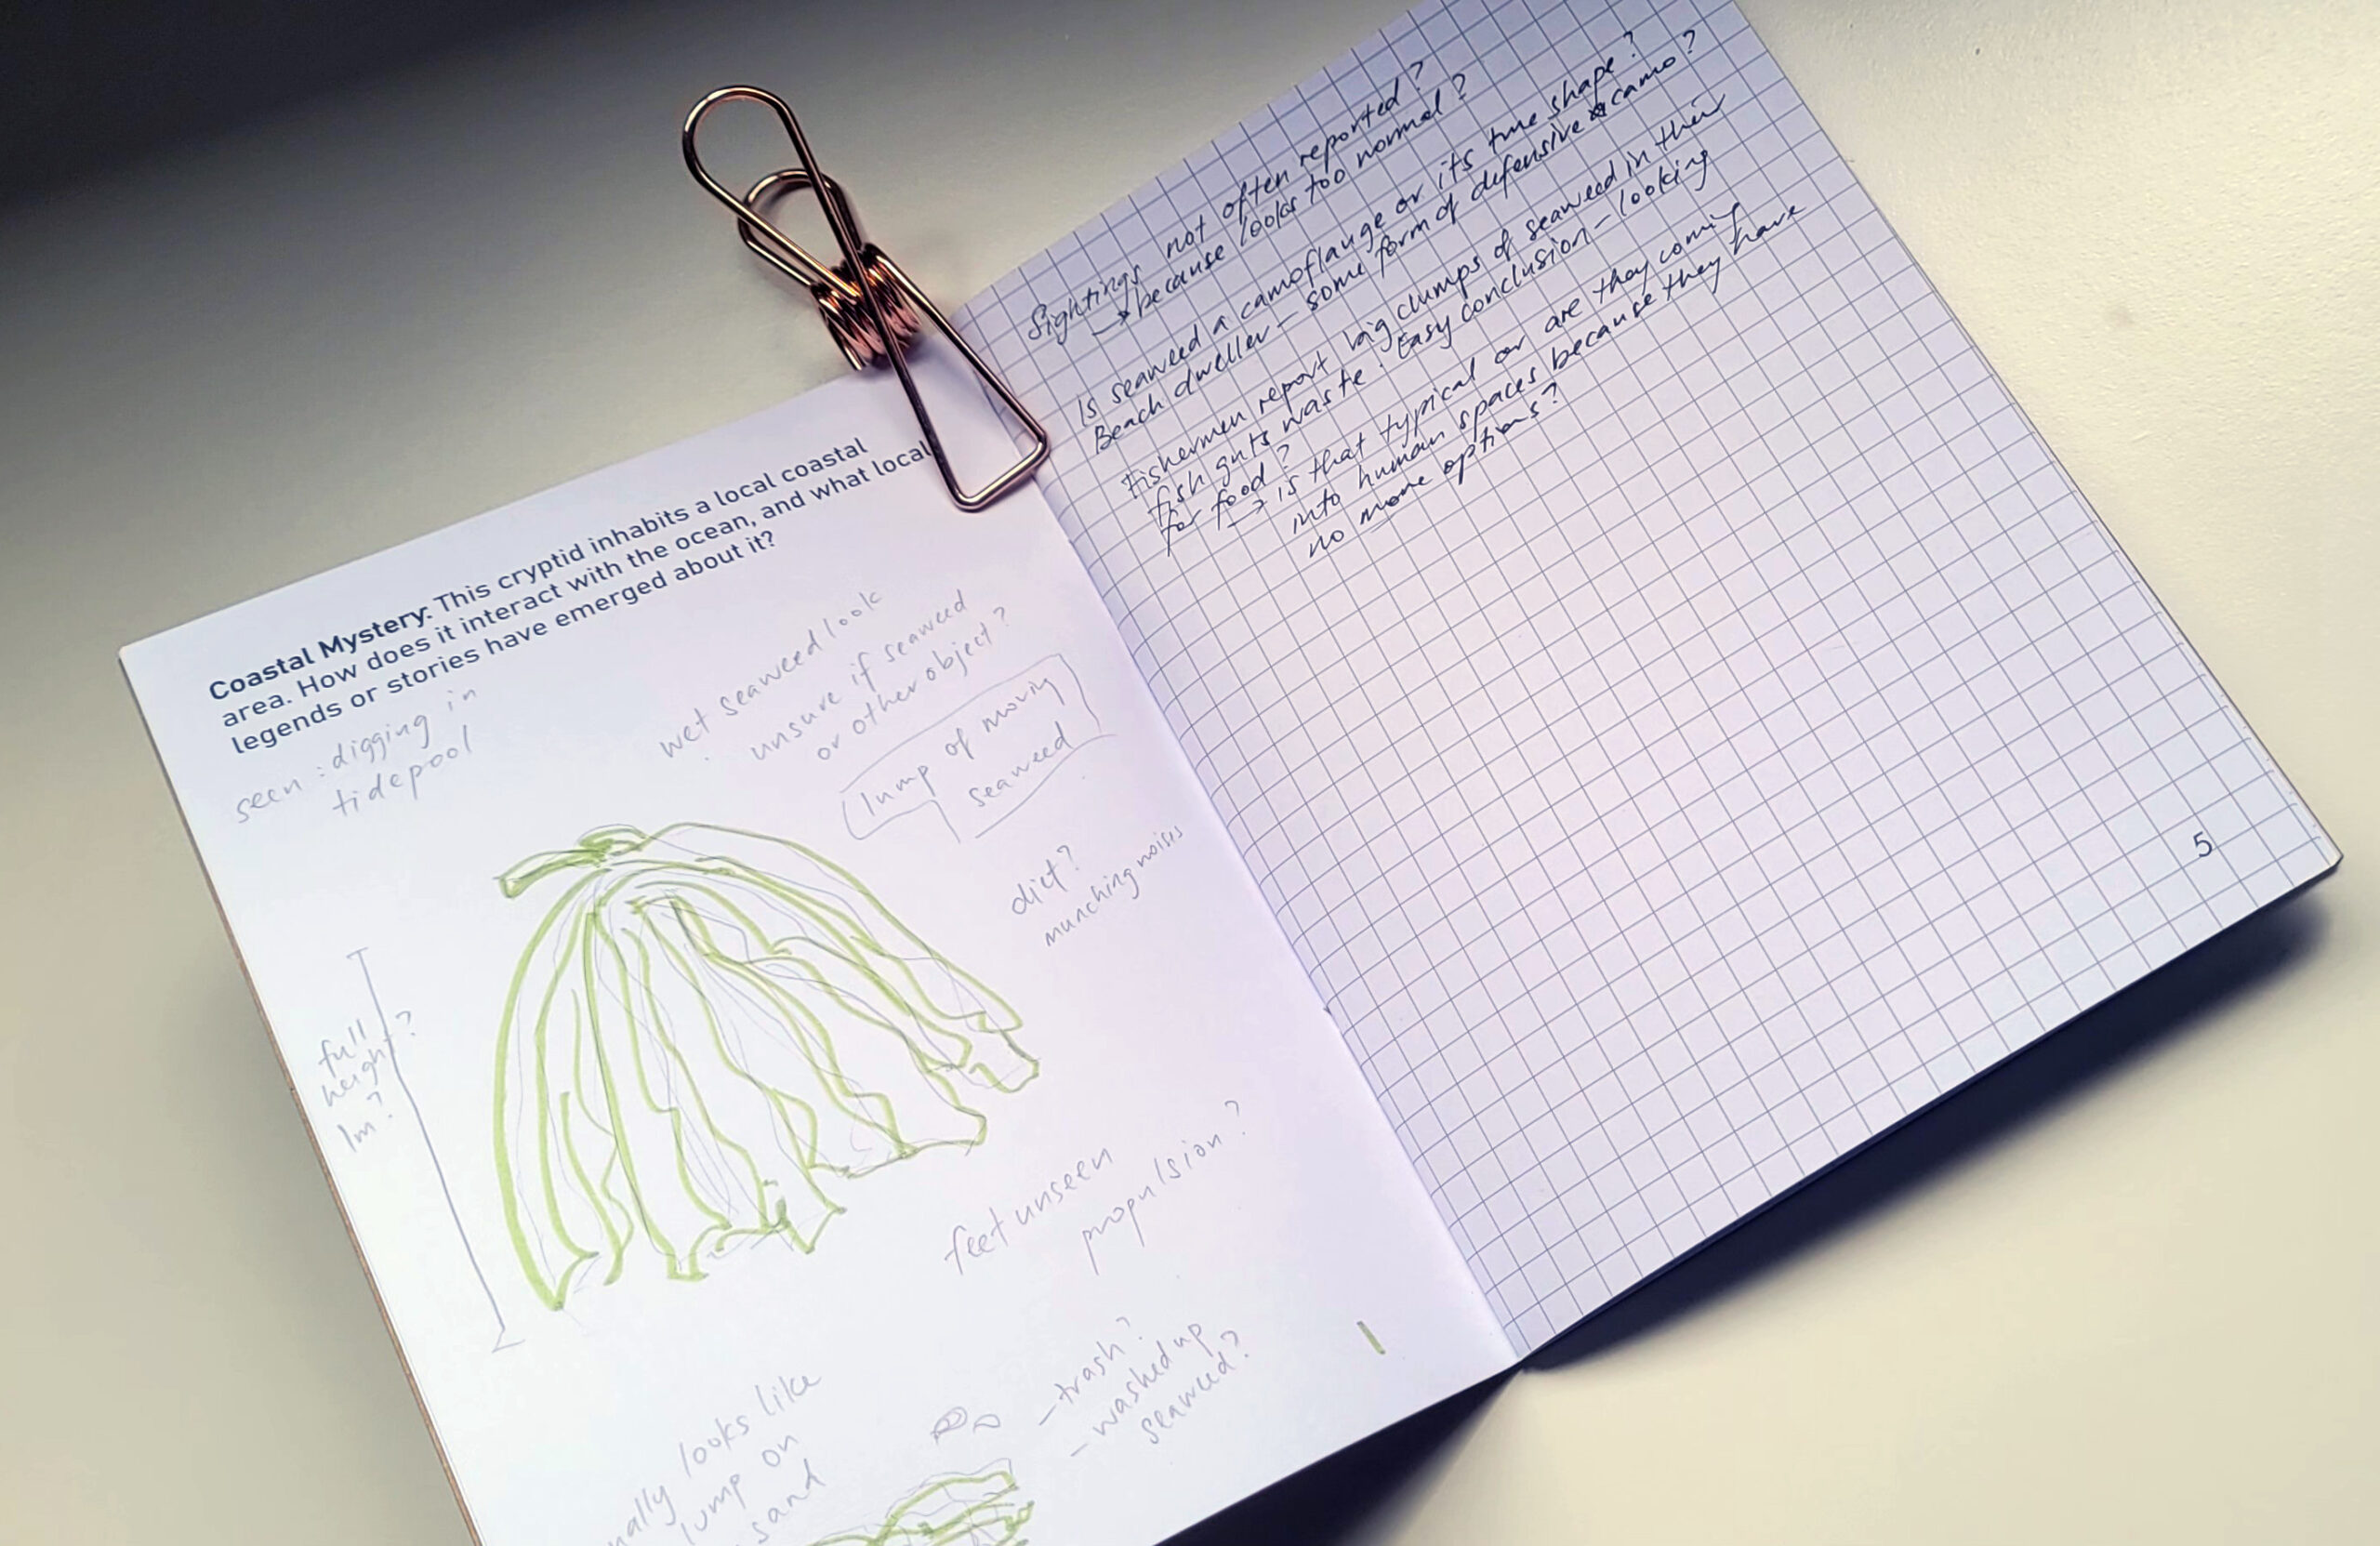 Coastal Mystery: This cryptid inhabits a local coastal
area. How does it interact with the ocean, and what local
legends or stories have emerged about it?
seen: digging in
tidepool
wet seaweed look
unsure if seaweed
or other object?
lump of moving
seaweed
diet?
munching noises
full
height?
?
1m
feet unseen
propulsion?
looks like
lump on
sand
-trash?
-washed up
seaweed?
Sightings not often reported?
→ because looks too normal?
Is seaweed a camoflauge or its true shape?
Beach dweller - some form of defensive camo?
Fishermen report big clumps of seaweed in their
fish guts waste. Easy conclusion - looking
for food?
→ is that typical or are they coming
into human spaces because they have
no more options?
5